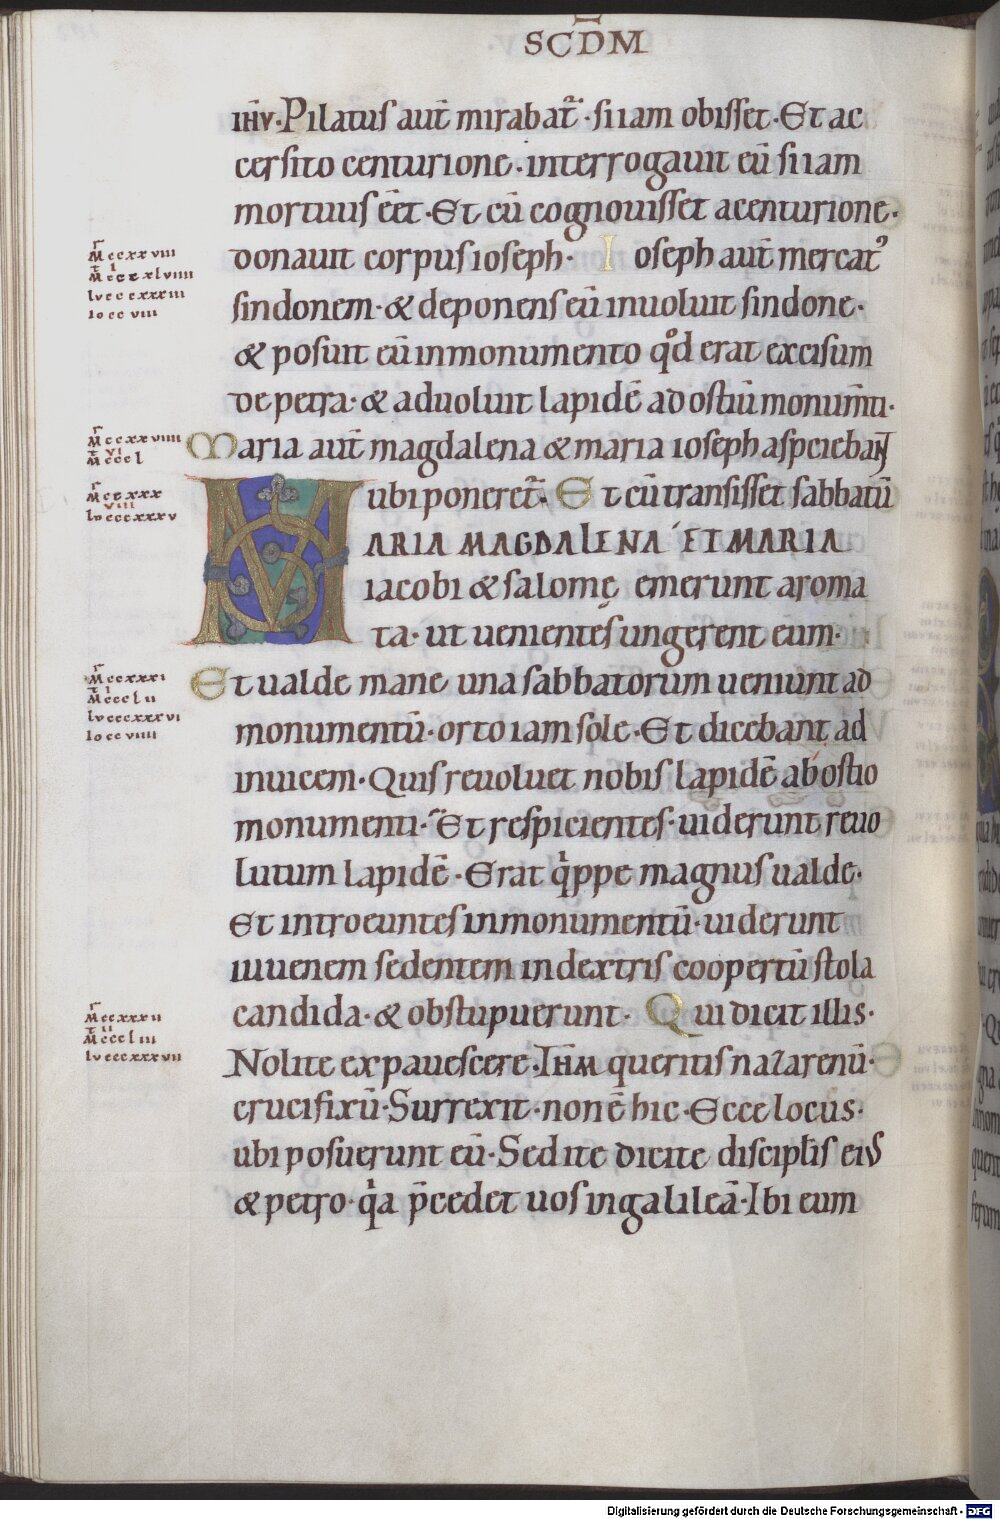 SCDM
ıħv. Pilatus aut̄ mirabat̄ . si iam obisset . Et ac
cersito centurione . interrogauit eū si iam
mortuus eēt . Et cū cognouisset a centurione .
donauit corpus ioseph . Ioseph aut̄ mercat᾿
sindonem . & deponens eū inuoluit sindone .
& posuit eū in monumento qͦd erat excisum
de petra . & aduoluit lapidē ad ostiū monum̄ti .
Maria aut̄ magdalena & maria ioseph aspiciebant
ubi poneret̄ . Et cū transisset sabbatū
MARIA MAGDALENA ET MARIA
iacobi & salomę emerunt aroma
ta . ut uenientes ungerent eum .
Et ualde mane una sabbatorum ueniunt ad
monumentū . orto iam sole . Et dicebant ad
inuicem . Quis reuoluet nobis lapidē ab ostio
monumenti . Et respicientes . uiderunt reuo
lutum lapidē . Erat qͥppe magnus ualde .
Et introeuntes in monumentū . uiderunt
iuuenem sedentem in dextris coopertū stola
candida . & obstupuerunt . Qui dicit illis .
Nolite expauescere . Iħm queritis nazarenū .
crucifixū . Surrexit . non ē hic . Ecce locus .
ubi posuerunt eū . Sed ite dicite discipl̄is eiˢ
& petro . qͥa p̄cedet uos in galileā . Ibi eum
r
Mccxxviii
t i
Mccxxlviiii
lvcccxxxiii
Io cc viii
r
Mccxxviiii
t vi
Mcccl
r
Mccxxx
viii
lvcccxxxv
r
Mccxxxi
t i
Mccclii
lvcccxxxvi
Io cc viiii
r
Mccxxxii
t ii
Mcccliii
lvcccxxxvii
Digitalisierung gefördert durch die Deutsche Forschungsgemeinschaft - DFG